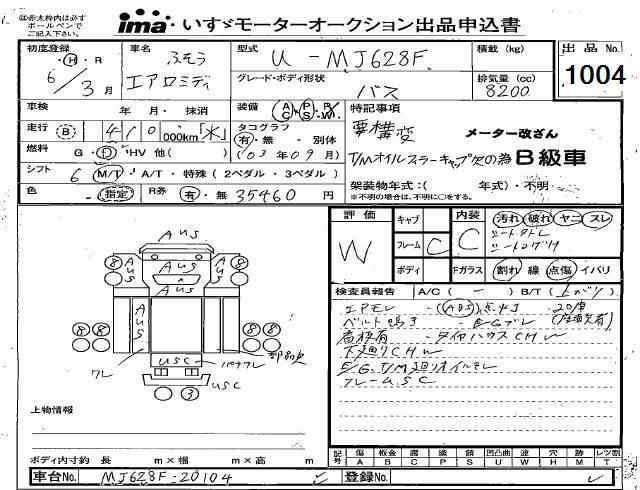 ㊟赤太枠内は必ず
ボールペンで
ご記入下さい。
ima® いすゞモーターオークション出品申込書
初度登録 ・H・R
6/3月
車名 ふそう
エアロミディ
型式 U-MJ628F
グレード・ボディ形状
バス
積載(kg)
排気量(cc)
8200
出品No.
1004
車検 年 月・抹消
装備 AC PS R/W
走行 B 410,000km「
燃料 G・D・HV 他( )
タコグラフ
有・無 別体
(03年09月)
シフト 6 M/T・A/T・特殊(2ペダル・3ペダル)
色 -指定 R券 有・無 35460円
特記事項
要構変 メーター改ざん
T/Mオイルフィラーキャップ欠の為B級車
架装物年式:( 年式)・不明
※不明の場合は、不明に○をする。
評価 W
キャブ
フレーム C
ボディ
内装 C
Fガラス
汚れ 破れ ヤニ スレ
シートヘタレ
シートコゲ
割れ 線 点傷 イバリ
検査員報告 A/C(-) B/T(上がり)
エアモレ -(ABS)点灯
ベルト鳴き -E/Gブレ
- タイヤハウスCHW
下廻りCHW
E/G、T/M廻りオイルモレ
フレームSC
AUS
AUS
AUS
AUS
AUS
W
8 8
8 8 8 8
USC
USC
3
ワレ
上物情報
ボディ内寸約 長 m×幅 m×高 m
記号 傷 A 板金 B 腐 C 塗 P 錆 S 凹凸曲 U 波 W 穴 H 跡 M レツ割 T
車台No. MJ628F-20104
登録No.